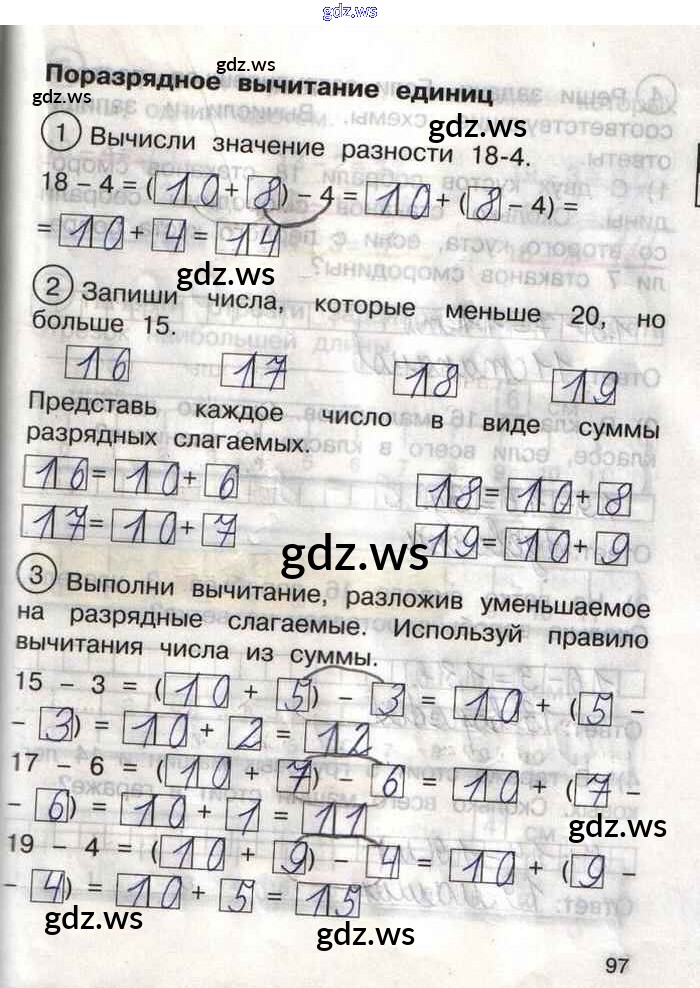 gdz.ws
gdz.ws
Поразрядное вычитание единиц
gdz.ws
gdz.ws
1 Вычисли значение разности 18-4.
18 – 4 = (10 + 8) – 4 = 10 + (8 – 4) =
= 10 + 4 = 14
gdz.ws
2 Запиши числа, которые меньше 20, но
больше 15.
16 17 18 19
Представь каждое число в виде суммы
разрядных слагаемых.
16 = 10 + 6 18 = 10 + 8
17 = 10 + 7 19 = 10 + 9
gdz.ws
3 Выполни вычитание, разложив уменьшаемое
на разрядные слагаемые. Используй правило
вычитания числа из суммы.
15 – 3 = (10 + 5) – 3 = 10 + (5 –
– 3) = 10 + 2 = 12
17 – 6 = (10 + 7) 6 = 10 + (7 –
– 6) = 10 + 1 = 11
gdz.ws
19 – 4 = (10 + 9) – 4 = 10 + (9 –
– 4) = 10 + 5 = 15
gdz.ws
gdz.ws
97